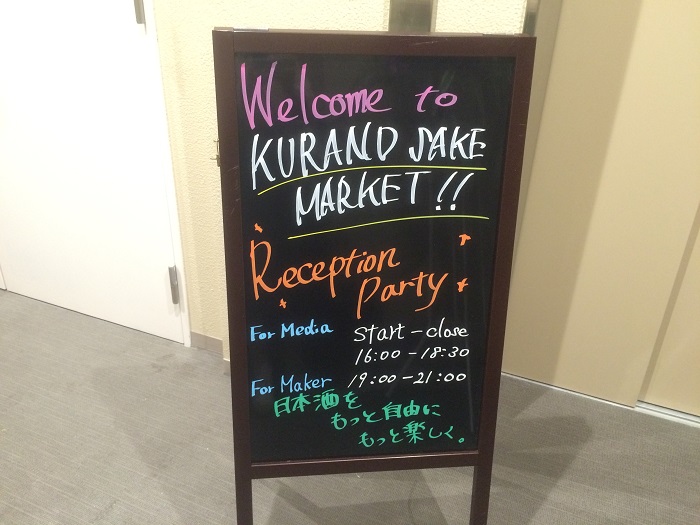 Welcome to
KURAND SAKE
MARKET!!
Reception
Party
For Media start-close
16:00-18:30
For Maker 19:00-21:00
日本酒を
もっと自由に
もっと楽しく。